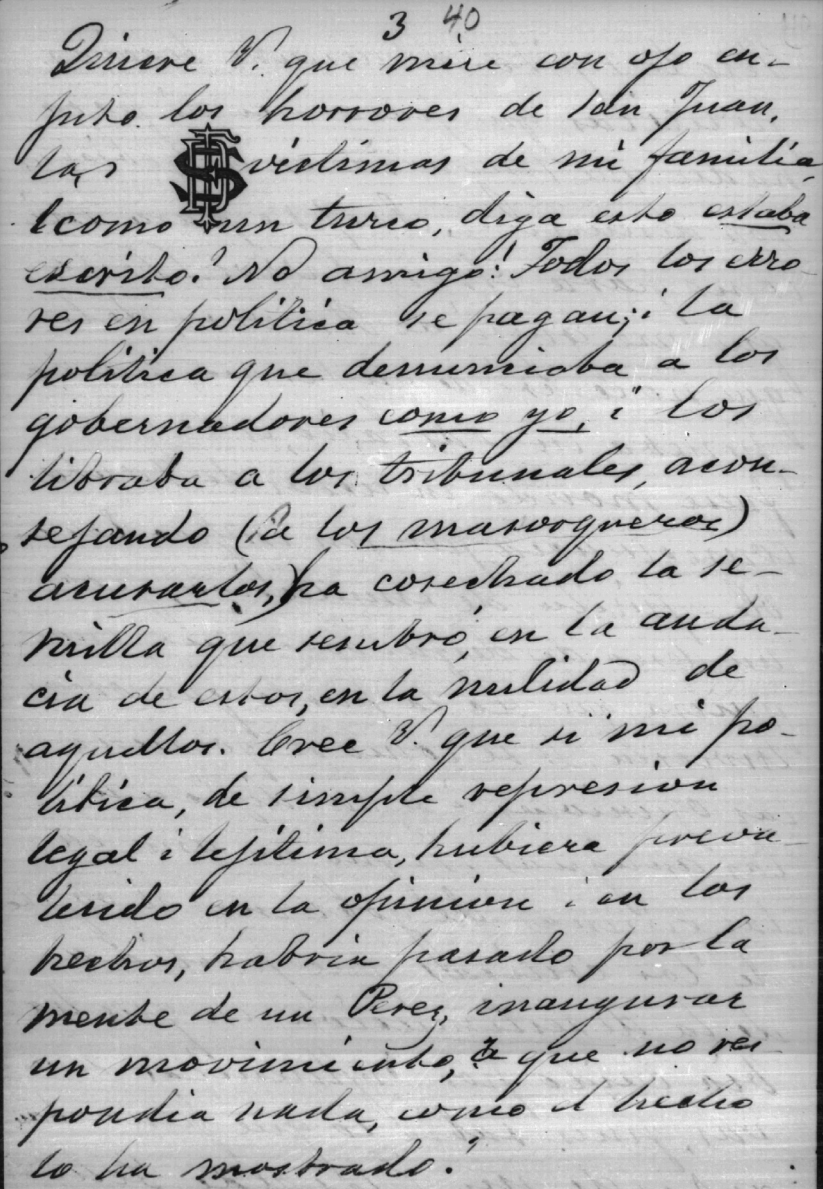 3 40
Quiere V. que mire con ojo en-
juto los horrores de San Juan,
las víctimas de mi familia,
i como un turco, diga esto estaba
escrito? No amigo! Todos los erro-
res en politica se pagan; i la
politica que denunciaba a los
gobernadores como yo, i los
libraba a los tribunales, acon-
sejando (a los mazorqueros)
acusarlos, ha cosechado la se-
milla que sembró, en la auda-
cia de estos, en la nulidad de
aquellos. Cree V. que si mi po-
litica, de simple represion
legal i lejitima, hubiera preva-
lecido en la opinion i en los
hechos, habria pasado por la
mente de un Perez, inaugurar
un movimiento, a que no res-
pondia nada, como el hecho
lo ha mostrado?